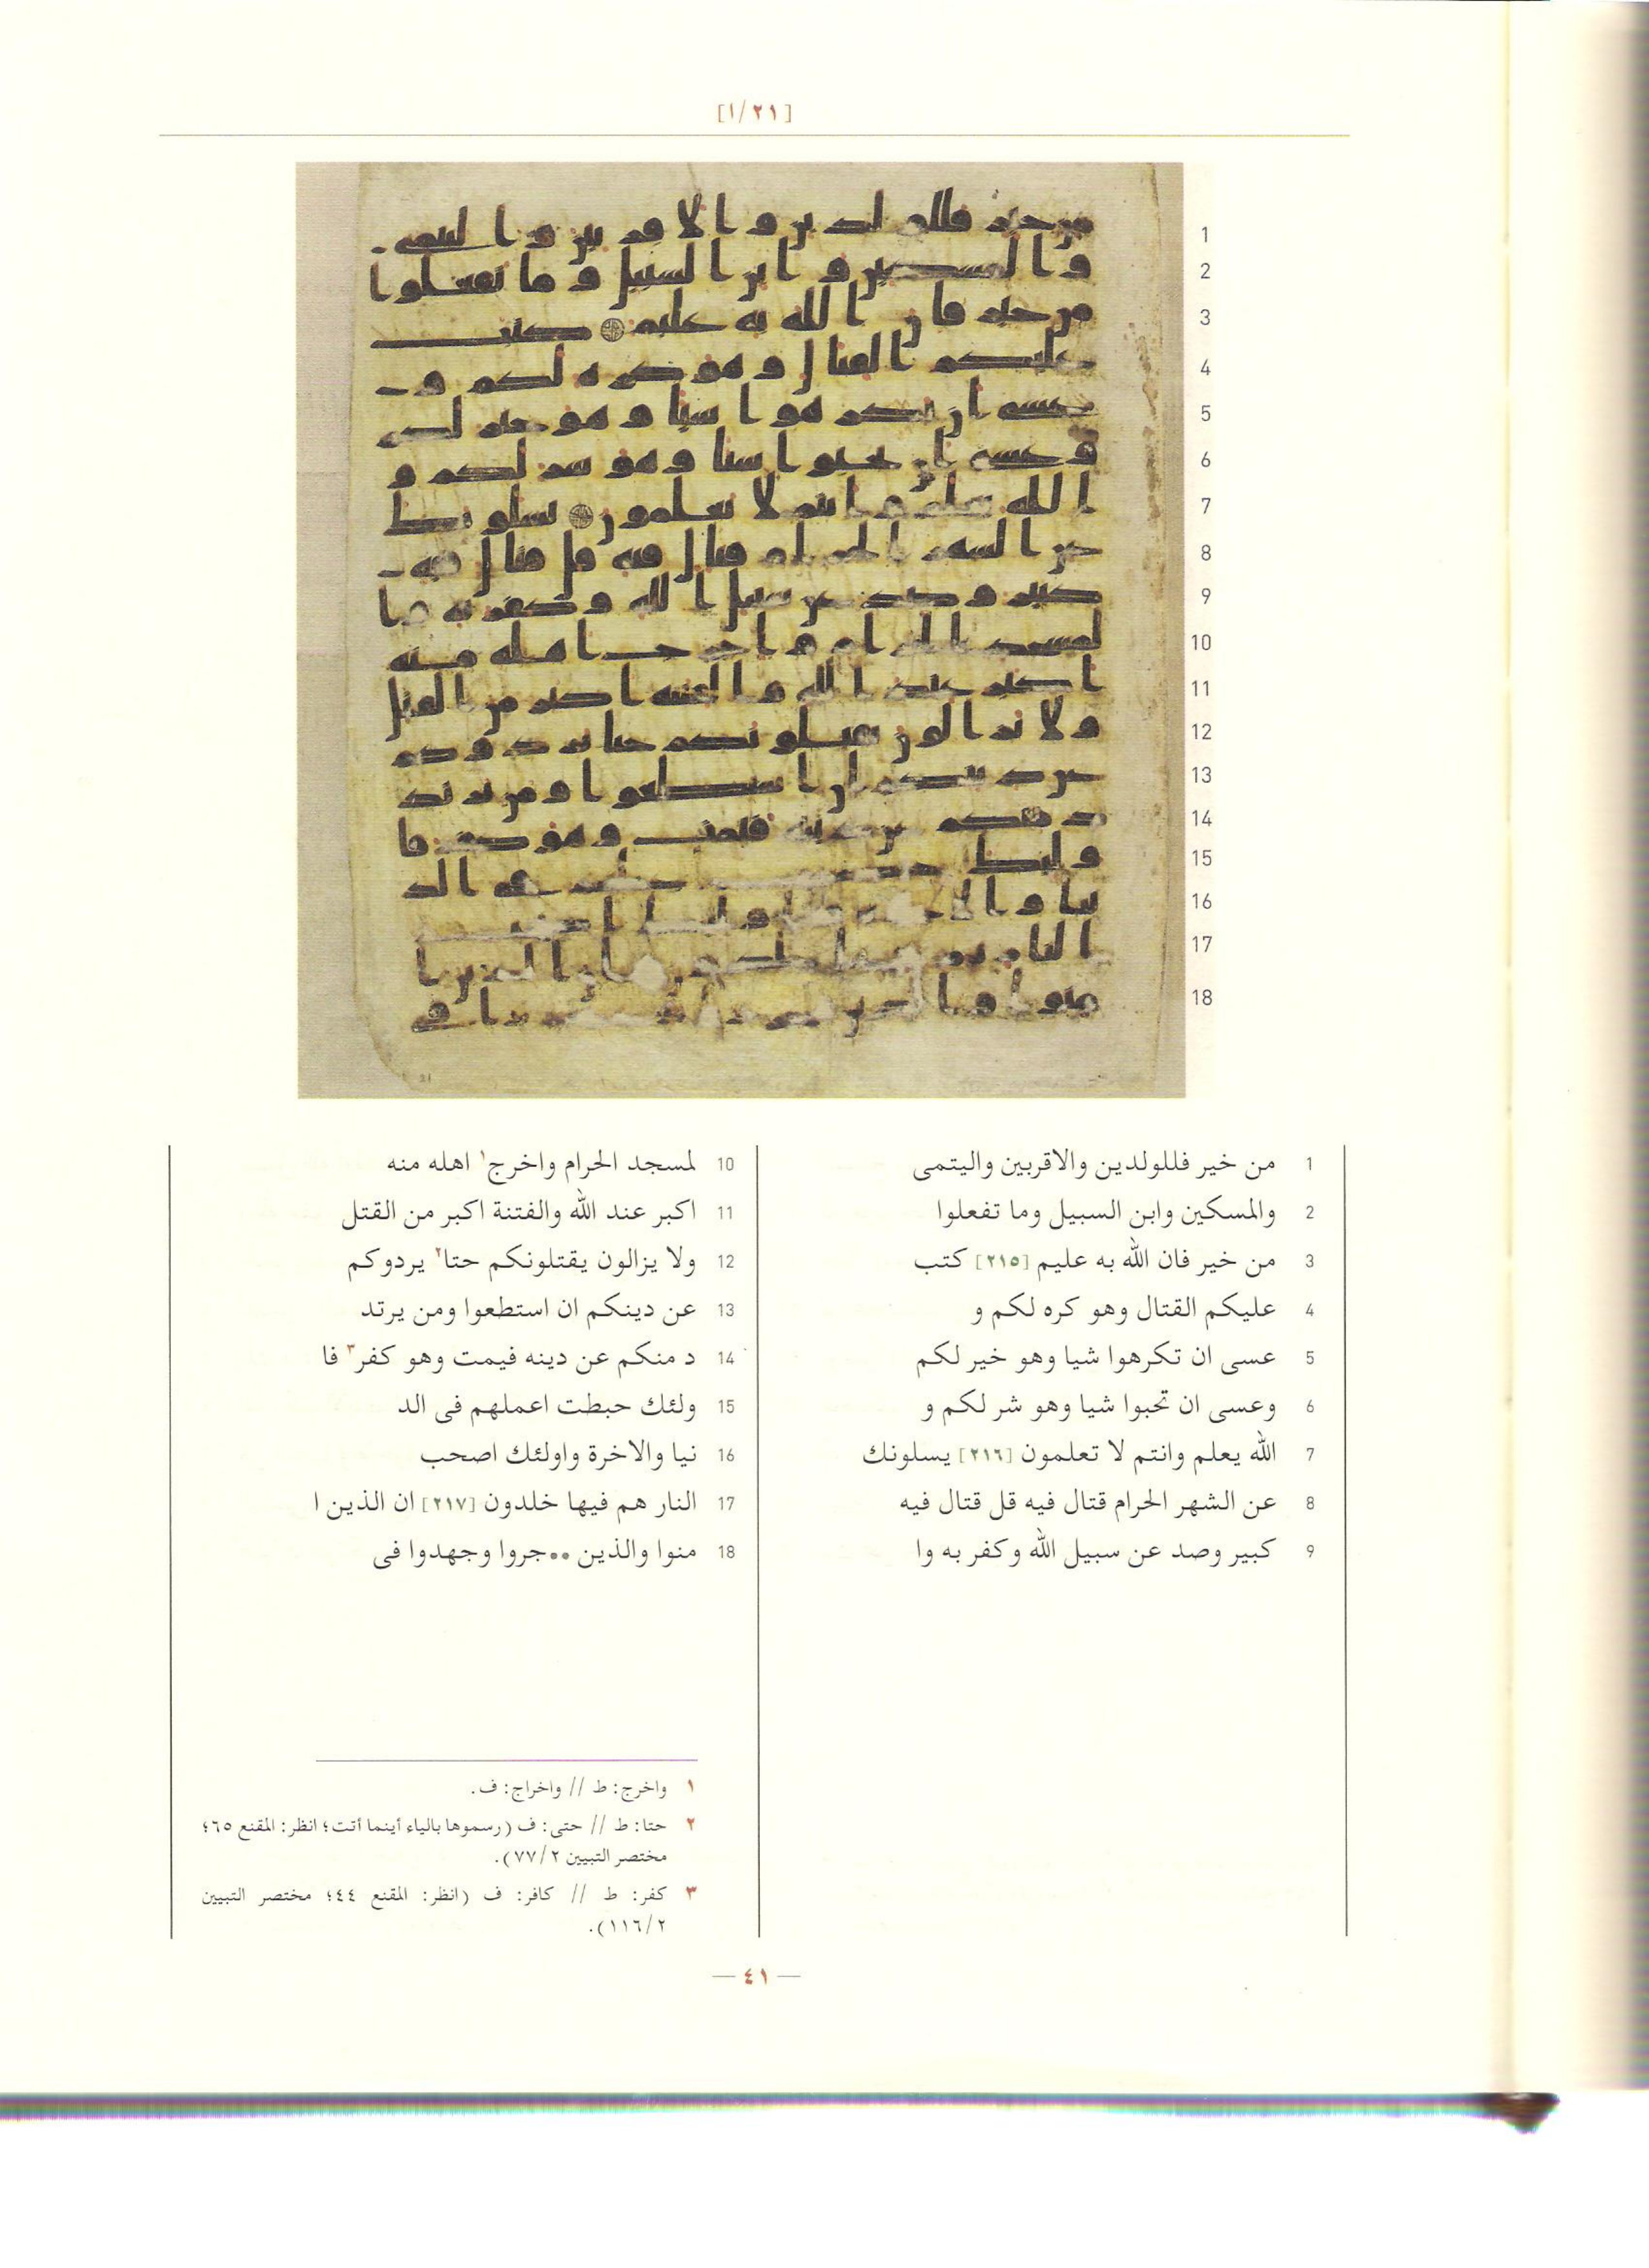 [١/٢١]
1
2
3
4
5
6
7
8
9
10
11
12
13
14
15
16
17
18
1 من خير فللولدين والاقربين واليتمى
2 والمسكين وابن السبيل وما تفعلوا
3 من خير فان الله به عليم [٢١٥] كتب
4 عليكم القتال وهو كره لكم و
5 عسى ان تكرهوا شيا وهو خير لكم
6 وعسى ان تحبوا شيا وهو شر لكم و
7 الله يعلم وانتم لا تعلمون [٢١٦] يسلونك
8 عن الشهر الحرام قتال فيه قل قتال فيه
9 كبير وصد عن سبيل الله وكفر به وا
10 لمسجد الحرام واخرج١ اهله منه
11 اكبر عند الله والفتنة اكبر من القتل
12 ولا يزالون يقتلونكم حتا٢ يردوكم
13 عن دينكم ان استطعوا ومن يرتد
14 د منكم عن دينه فيمت وهو كفر٣ فا
15 ولئك حبطت اعملهم فى الد
16 نيا والاخرة واولئك اصحب
17 النار هم فيها خلدون [٢١٧] ان الذين ا
18 منوا والذين ••جروا وجهدوا فى
١ واخرج: ط // واخراج: ف.
٢ حتا: ط // حتى: ف (رسموها بالياء أينما أتت؛ انظر: المقنع ٦٥؛
مختصر التبيين ٧٧/٢).
٣ كفر: ط // كافر: ف (انظر: المقنع ٤٤؛ مختصر التبيين
١١٦/٢).
— ٤١ —